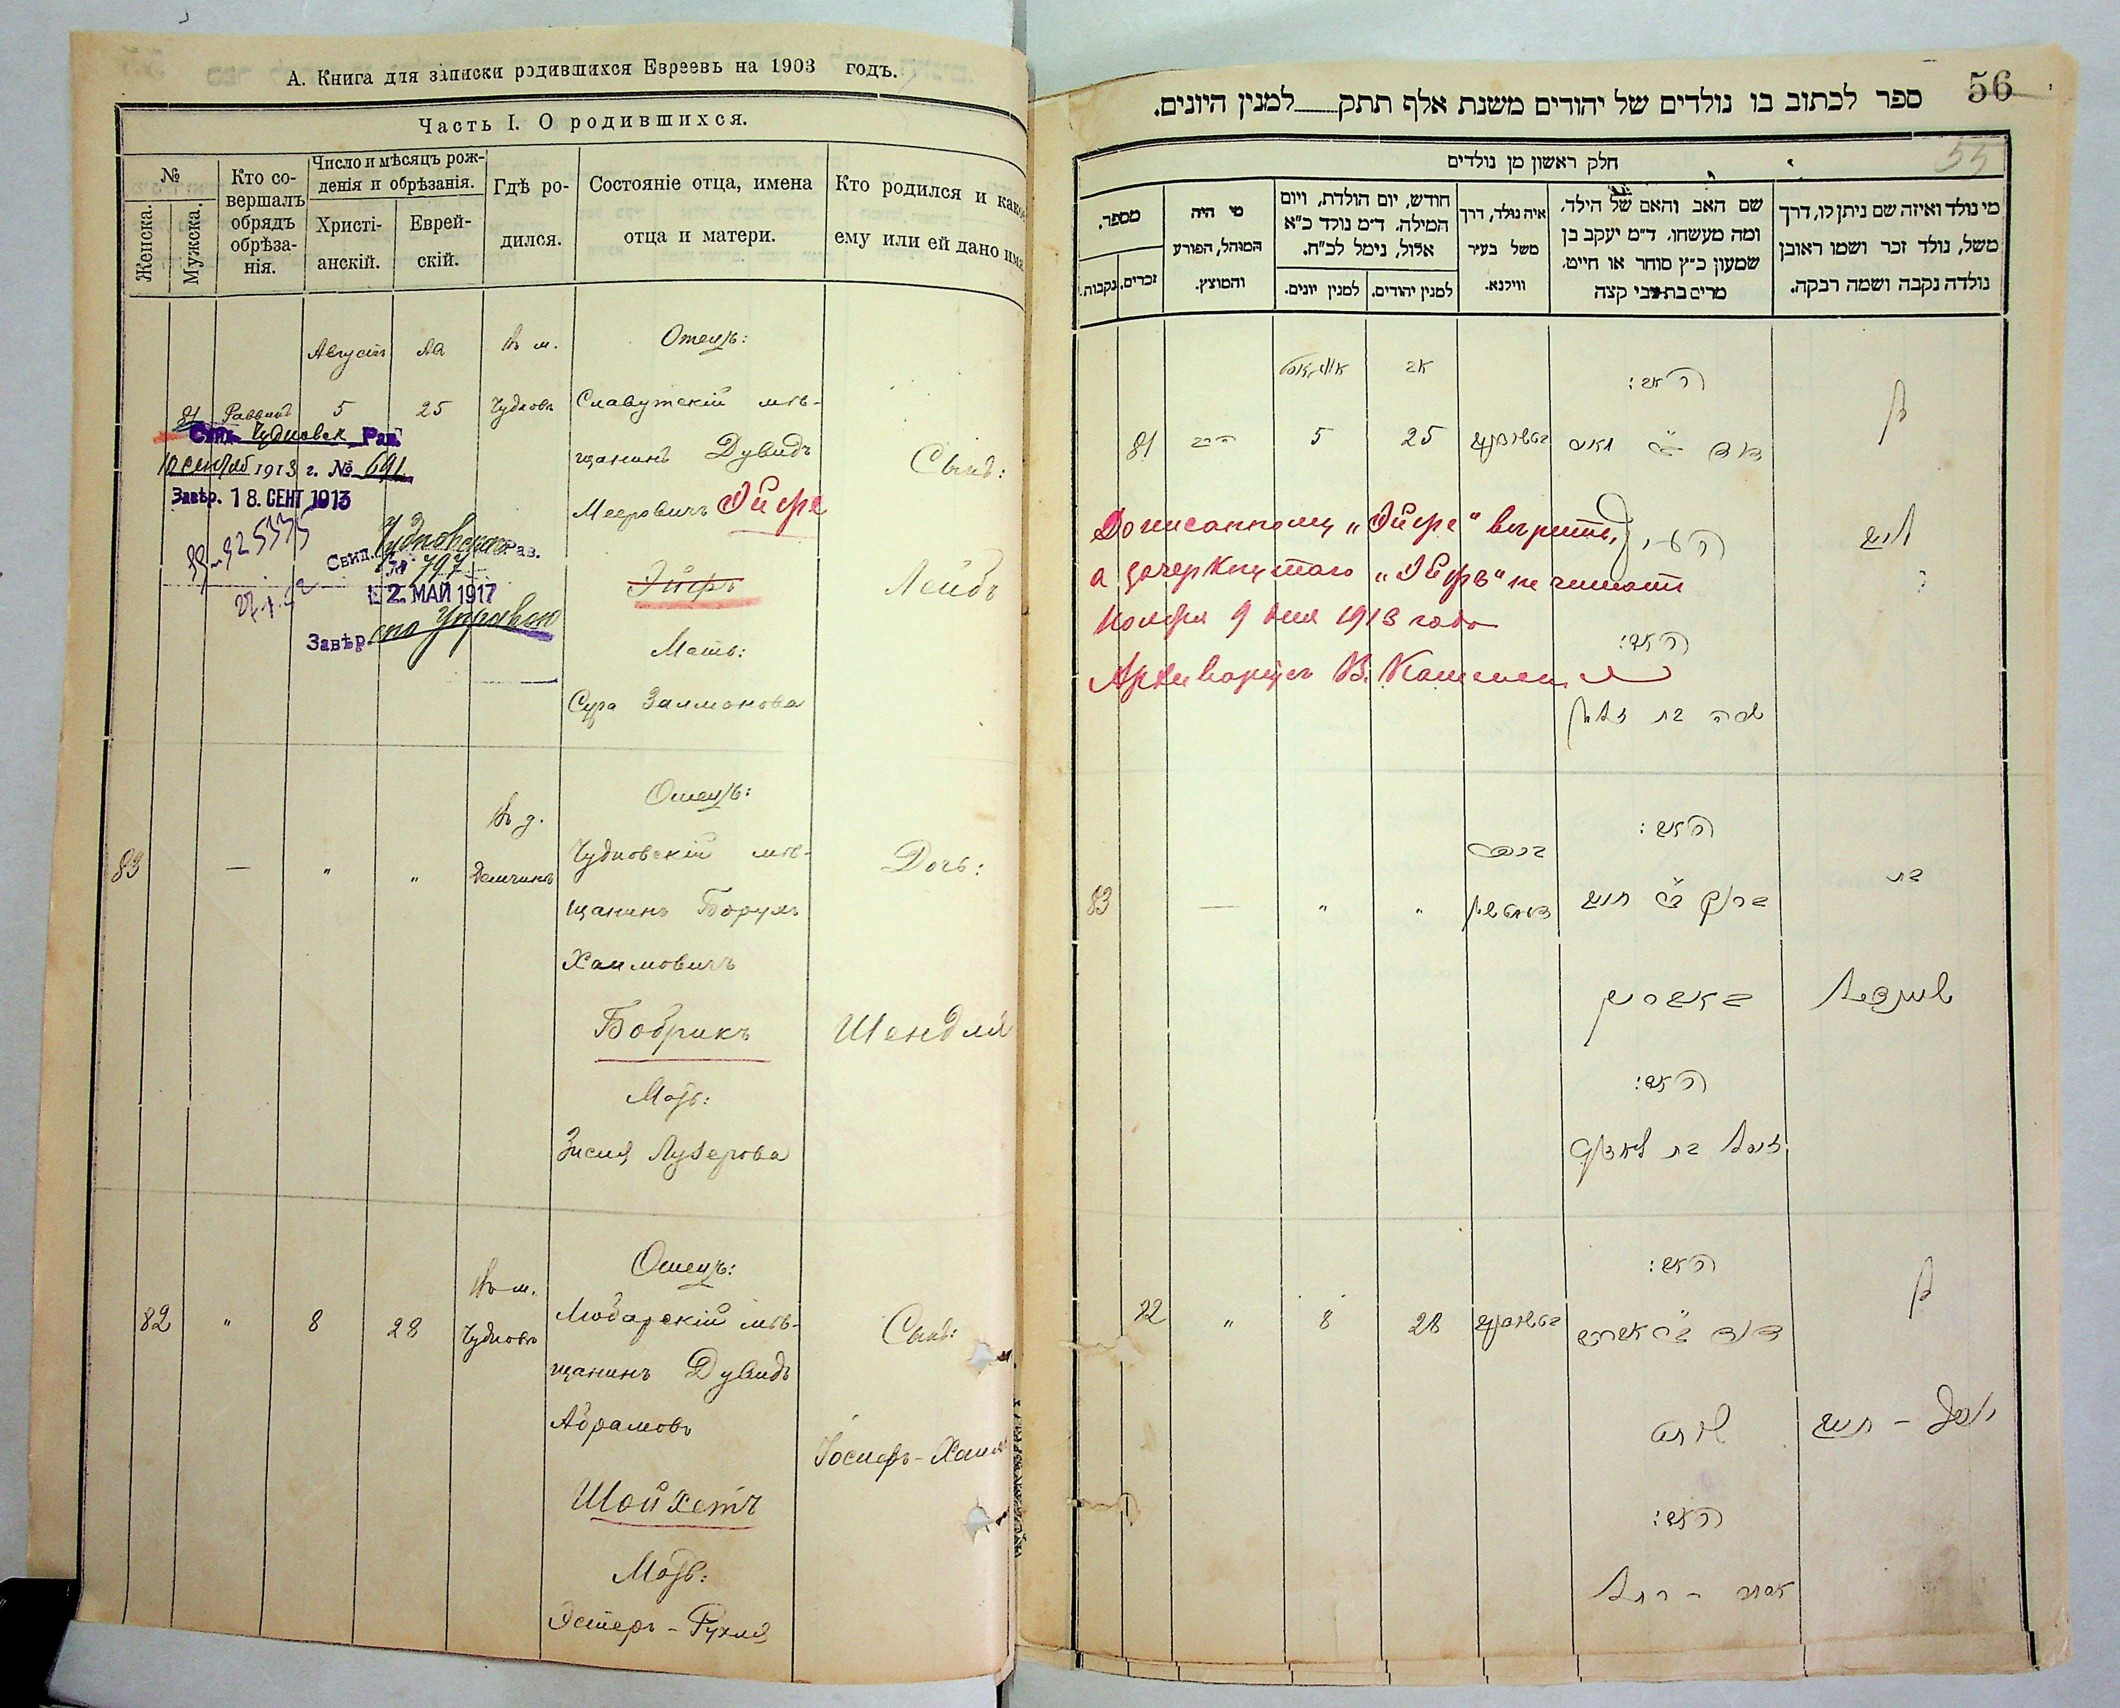 А. Книга для записки родившихся Евреевъ на 1903 годъ.
Часть I. О родившихся.
№
Женска.
Мужска.
Кто со-
вершалъ
обрядъ
обрѣза-
нія.
Число и мѣсяцъ рож-
денія и обрѣзанія.
Христі-
анскій.
Еврей-
скій.
Гдѣ ро-
дился.
Состояніе отца, имена
отца и матери.
Кто родился и како
ему или ей дано имя
Августъ Ав Въ м. Отецъ:
81 Раввинъ 5 25 Чудновъ Славутскій мѣ-
щанинъ Дувидъ
Сынъ:
Мееровичъ Ойфе
Эйфъ
Лейбъ
Мать:
Сура Залмонова
Свид. Чудновск Рав.
10 сентяб 1913 г. № 691
Завѣр. 18. СЕНТ 1913
Свид. Чудновскаго Рав.
№ 797
2. МАЙ 1917
Завѣр. по Управѣ
Отецъ:
Въ д.
83 — " " Чудновскій мѣ-
Дочь:
щанинъ Борухъ
Хаимовичъ
Бобрикъ Шендля
Мать:
Зисля Лузерова
Отецъ:
Въ м.
82 " 8 28 Чудновъ Любарскій мѣ-
Сынъ:
щанинъ Дувидъ
Абрамовъ
Іосифъ-Хаимъ
Шойхетъ
Мать:
Эстеръ-Рухля
56
55
ספר לכתוב בו נולדים של יהודים משנת אלף תתק למנין היונים.
חלק ראשון מן נולדים
מספר.
נקבות.
זכרים.
מי היה
המוהל, הפורע
והמוצץ.
חודש, יום הולדת, ויום
המילה. ד״מ נולד כ״א
אלול, נימל לכ״ח.
למנין יונים.
למנין יהודים.
איה נולד, דרך
משל בעיר
ווילנא.
שם האב והאם של הילד,
ומה מעשהו. ד״מ יעקב בן
שמעון כ״ץ סוחר או חייט.
מרים בת צבי קצה
מי נולד ואיזה שם ניתן לו, דרך
משל, נולד זכר ושמו ראובן
נולדה נקבה ושמה רבקה.
אויגוסט אב האב:
בן
81 הרב 5 25 טשודנוב דוד ב״ר מאיר
Дописанному „Ойфе“ вѣрить,
а зачеркнутаго „Эйфъ“ не читать
Ноября 9 дня 1913 года
Архиваріусъ В.
לייב
האם:
שרה בת זלמן
האב:
בכפר
בת
83 — " " ברוך ב״ר חיים
באבריק
שיינדל
האם:
זיסל בת לאזער
האב:
בן
82 " 8 28 טשודנוב דוד ב״ר אברהם
שוחט
יוסף - חיים
האם:
אסתר - רחל